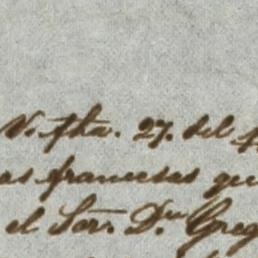 V. fha. 27. del
as francesas qu
el Sor. Dn. Greg